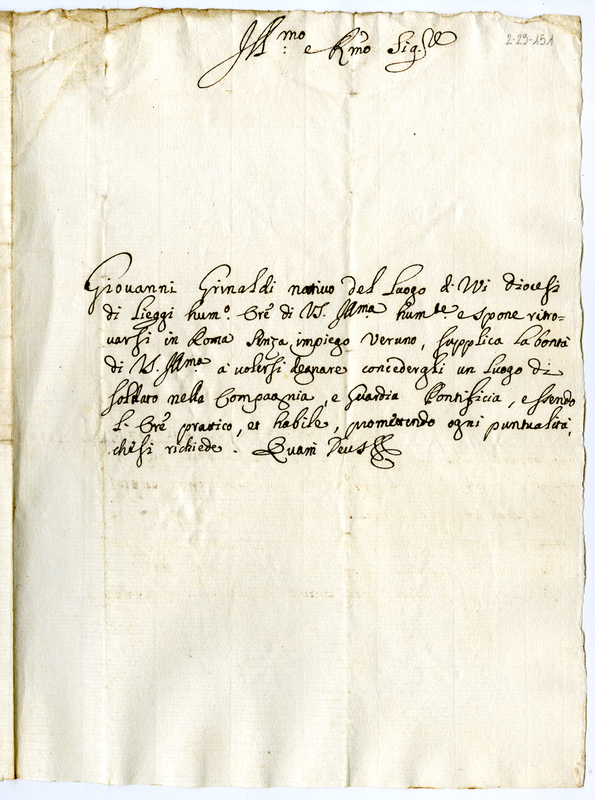 Ill.mo e R.mo Sig.re
2-29-151
Giovanni Grinaldi nativo del Luogo di Wi diocesi
di Lieggi hum.o Ore di V.S. Ill.ma hum.te espone ritro=
varsi in Roma senza impiego veruno, supplica la bontà
di V.S. Ill.ma à volersi degnare concedergli un luogo di
soldato nella Compagnia, e Guardia Pontificia, essendo
l'Ore pratico, et habile, promettendo ogni puntualità,
che si richiede. Quam Deus